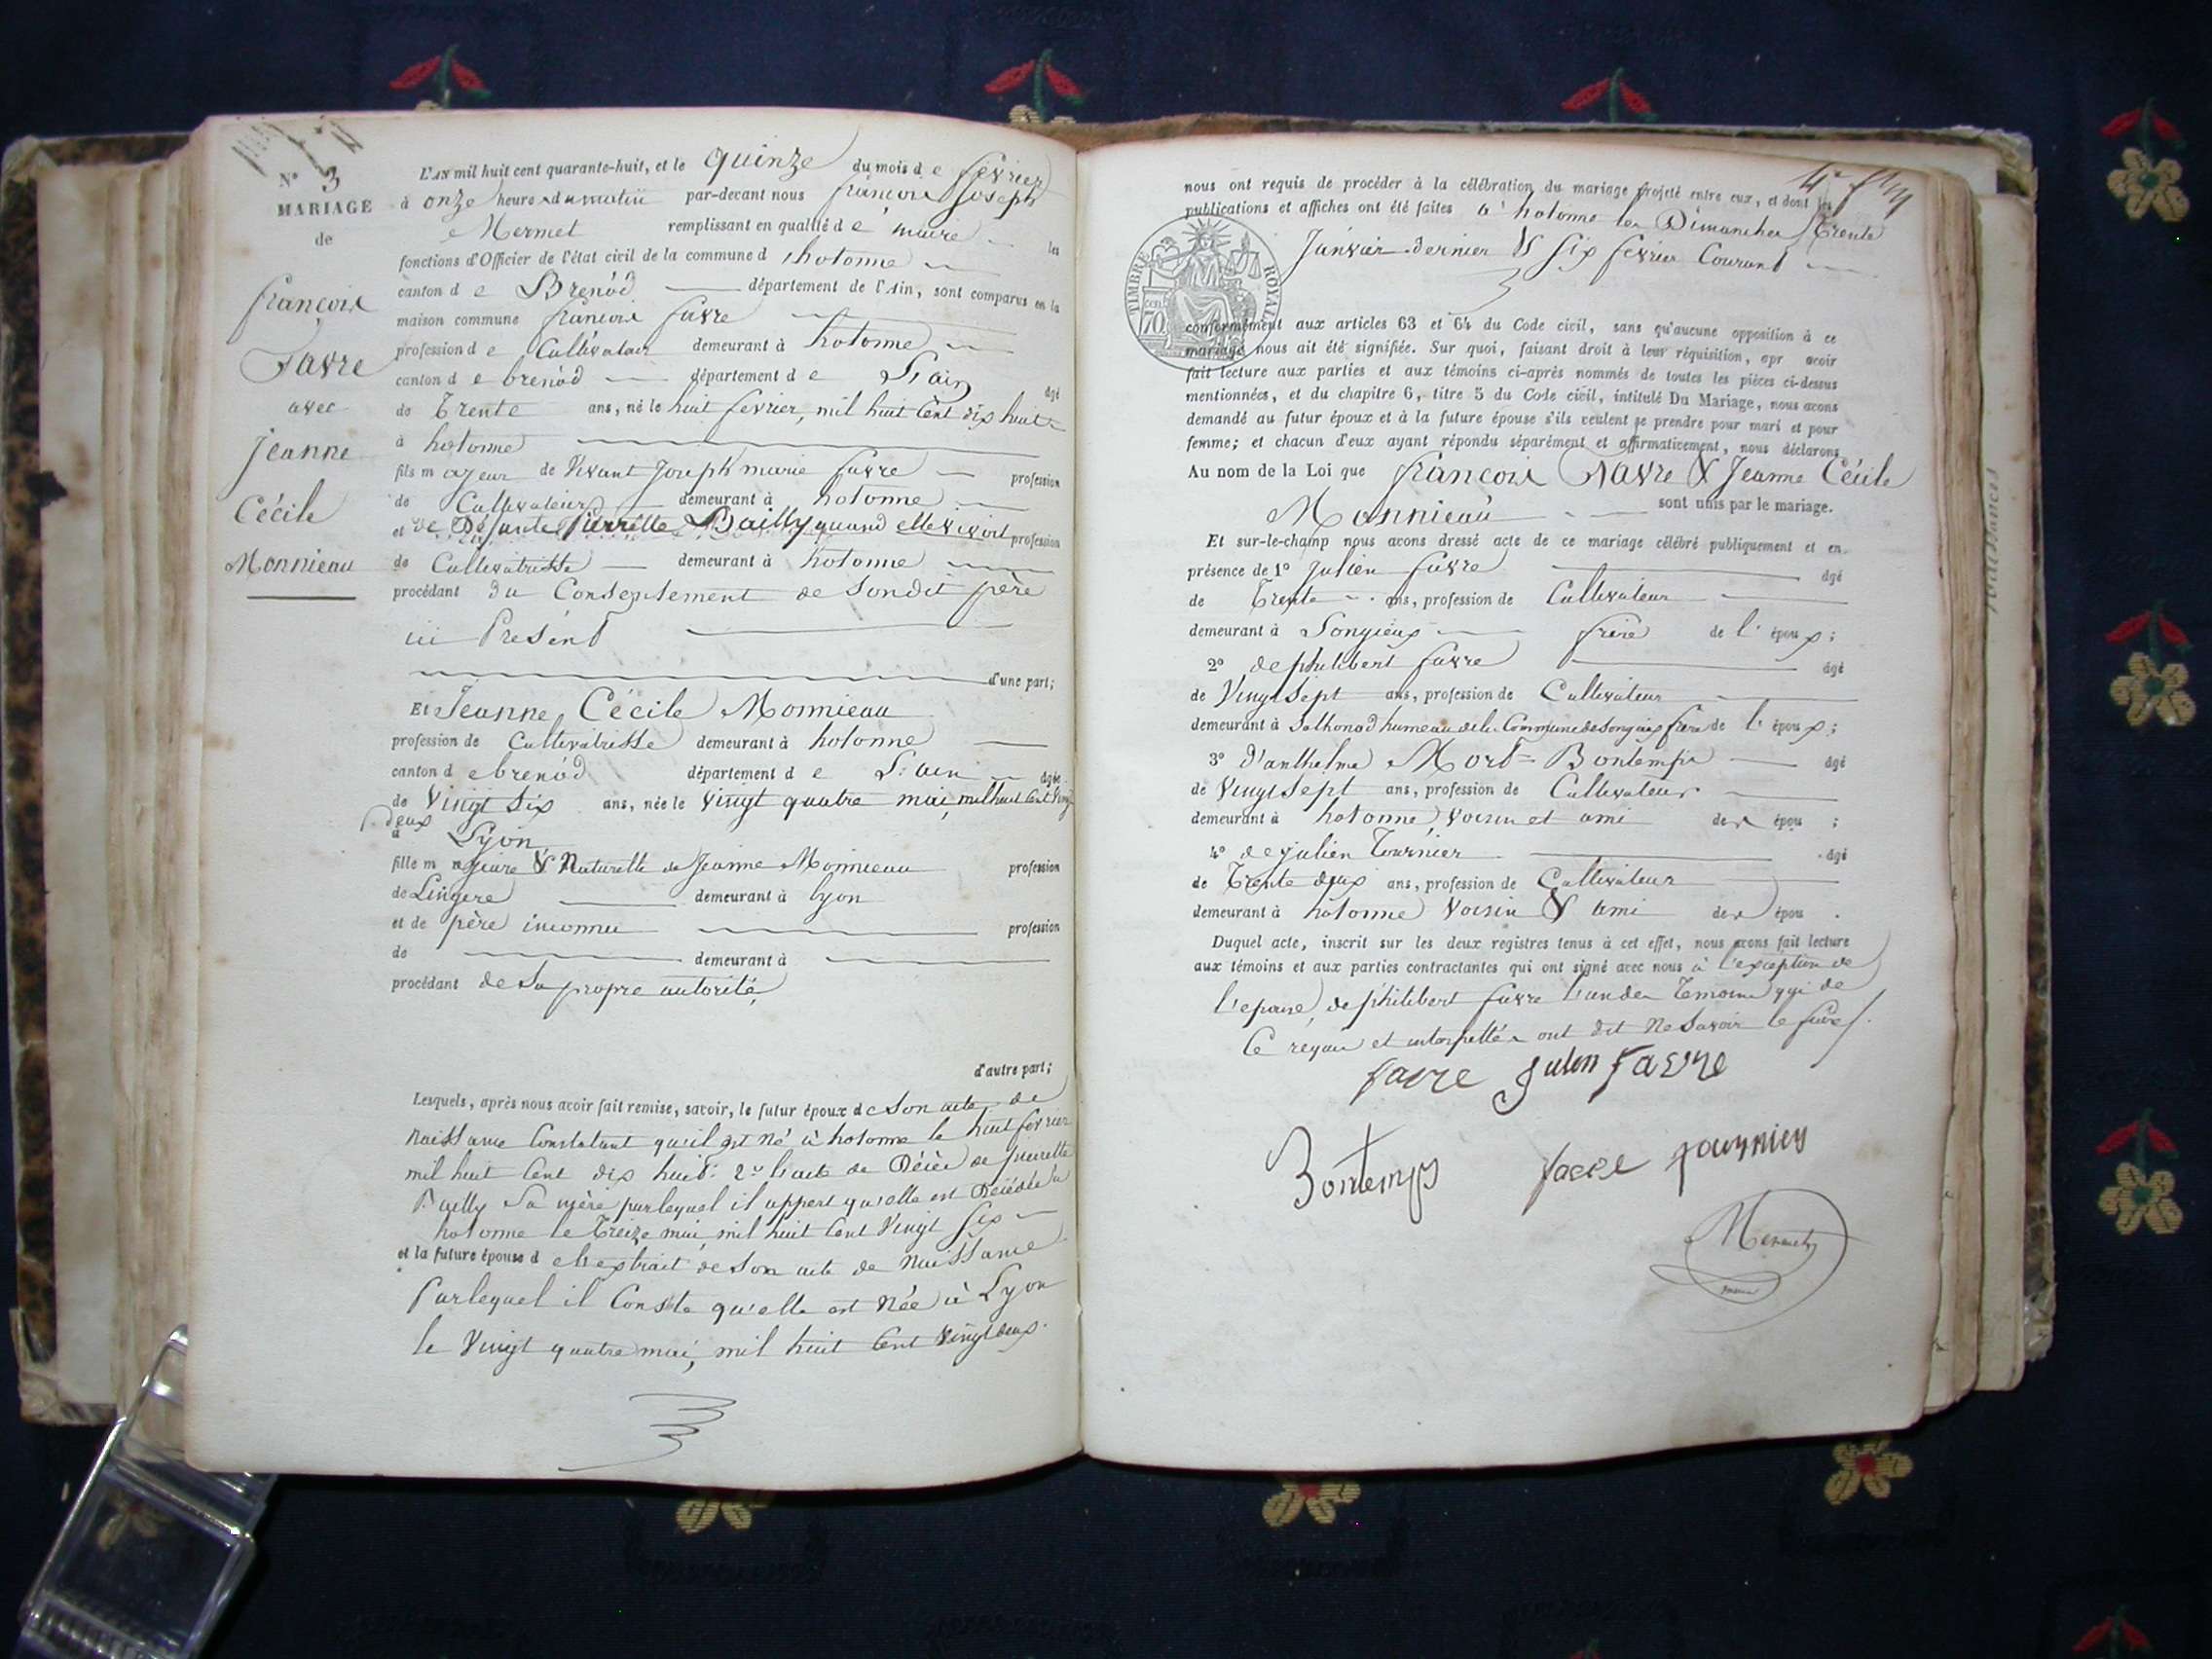 N° 3
MARIAGE
de
françois
Favre
avec
Jeanne
Cécile
Monnieau
L'AN mil huit cent quarante-huit, et le quinze du mois de février
à onze heures du matin par-devant nous françois Joseph
Mermet remplissant en qualité de maire les
fonctions d'Officier de l'état civil de la commune d'hotonne
canton de Brenód département de l'Ain, sont comparus en la
maison commune françois favre
profession de Cultivateur demeurant à hotonne
canton de brenód département de L'ain âgé
de Trente ans, né le huit fevrier, mil huit Cent dix huit
à hotonne
fils majeur de Vivant Joseph marie favre profession
de Cultivateur demeurant à hotonne
et de Défunte Pierrette Bailly quand elle vivoit profession
de Cultivatrisse demeurant à hotonne
procédant du Consentement de Sondit père
ici Présent
d'une part;
Et Jeanne Cécile Monnieau
profession de Cultivatrisse demeurant à hotonne
canton de brenód département de L'ain âgée
de Vingt Six ans, née le Vingt quatre mai, mil huit Cent Vingt
deux
à Lyon
fille majeure & Naturelle de Jeanne Monnieau profession
de Lingere demeurant à lyon
et de père inconnu profession
de demeurant à
procédant de Sa propre autorité,
d'autre part;
Lesquels, après nous avoir fait remise, savoir, le futur époux de Son acte de
Naissance Constatant qu'il est Né à hotonne le huit fevrier
mil huit Cent dix huit: 2° l'acte de Décès de pierrette
Bailly Sa mère par lequel il appert qu'elle est Décédée à
hotonne le Treize mai mil huit Cent Vingt Six
et la future épouse de l'extrait de Son acte de Naissance
Par lequel il Conste qu'elle est Née à Lyon
le Vingt quatre mai, mil huit Cent Vingt deux.
nous ont requis de procéder à la célébration du mariage projeté entre eux, et dont les
publications et affiches ont été faites à hotonne les Dimanches Trente
Janvier dernier & Six fevrier Courant
TIMBRE ROYAL
cen. 70
conformément aux articles 63 et 64 du Code civil, sans qu'aucune opposition à ce
mariage nous ait été signifiée. Sur quoi, faisant droit à leur réquisition, apr avoir
fait lecture aux parties et aux témoins ci-après nommés de toutes les pièces ci-dessus
mentionnées, et du chapitre 6, titre 5 du Code civil, intitulé Du Mariage, nous avons
demandé au futur époux et à la future épouse s'ils veulent se prendre pour mari et pour
femme; et chacun d'eux ayant répondu séparément et affirmativement, nous déclarons
Au nom de la Loi que françois Favre & Jeanne Cécile
Monnieau sont unis par le mariage.
Et sur-le-champ nous avons dressé acte de ce mariage célébré publiquement et en
présence de 1° Julien favre âgé
de Trente ans, profession de Cultivateur
demeurant à Songieux frère de l'époux;
2° de philibert favre âgé
de Vingt Sept ans, profession de Cultivateur
demeurant à hameau de la Commune de Songieux frère de l'époux;
3° d'anthelme Mort=Bontemps âgé
de Vingt Sept ans, profession de Cultivateur
demeurant à hotonne, Voisin et ami des épou ;
4° de julien Tournier âgé
de Trente deux ans, profession de Cultivateur
demeurant à hotonne Voisin & ami des épou .
Duquel acte, inscrit sur les deux registres tenus à cet effet, nous avons fait lecture
aux témoins et aux parties contractantes qui ont signé avec nous à l'exception de
l'epouse, de philibert favre l'un des Temoins qui de
Ce requis et interpellés ont dit Ne Savoir le faire.
favre Julen favre
Bontemps favre tournier
Mermet
maire